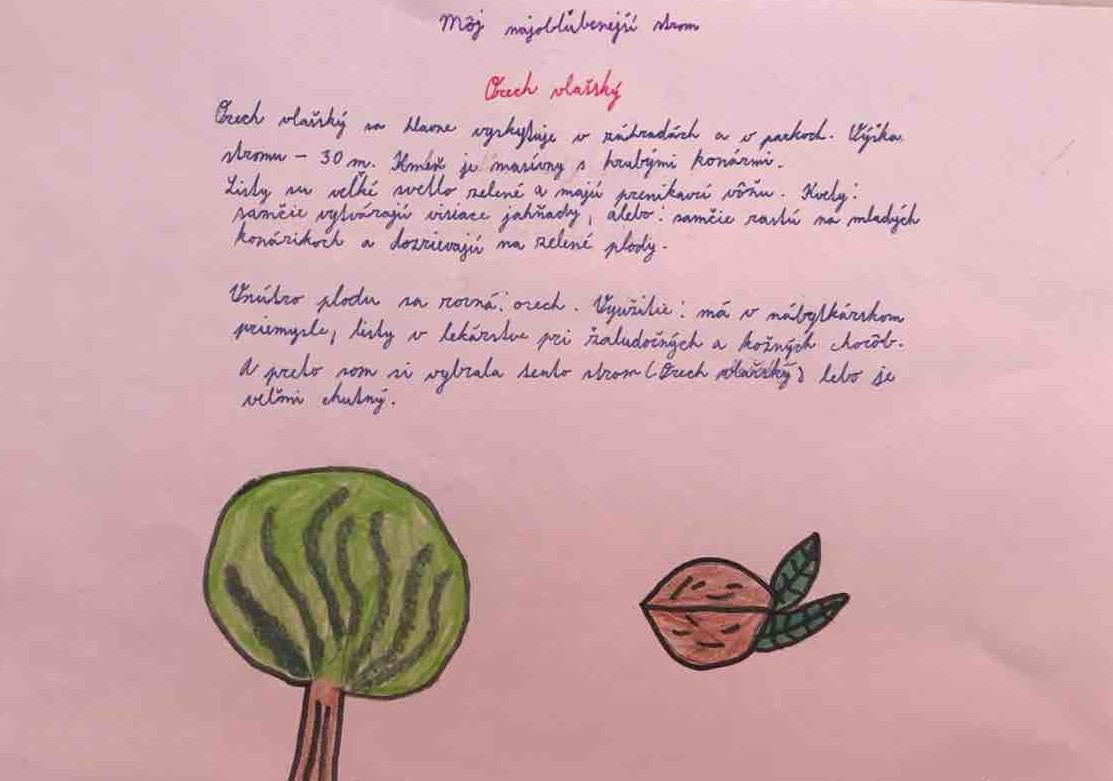 Môj najobľúbenejší strom
Orech vlašský
Orech vlašský sa hlavne vyskytuje v záhradách a v parkoch. Výška
stromu - 30 m. Kmeň je masívny s hrubými konármi.
Listy su veľké svetlo zelené a majú prenikavú vôňu. Kvety:
samčie vytvárajú visiace jahňady, alebo: samčie rastú na mladých
konárikoch a dozrievajú na zelené plody.
Vnútro plodu sa rozná: orech. Využitie: má v nábytkárskom
priemysle, listy v lekárstve pri žaludočných a kožných chorôb.
A preto som si vybrala tento strom (Orech vlašský) lebo je
veľmi chutný.